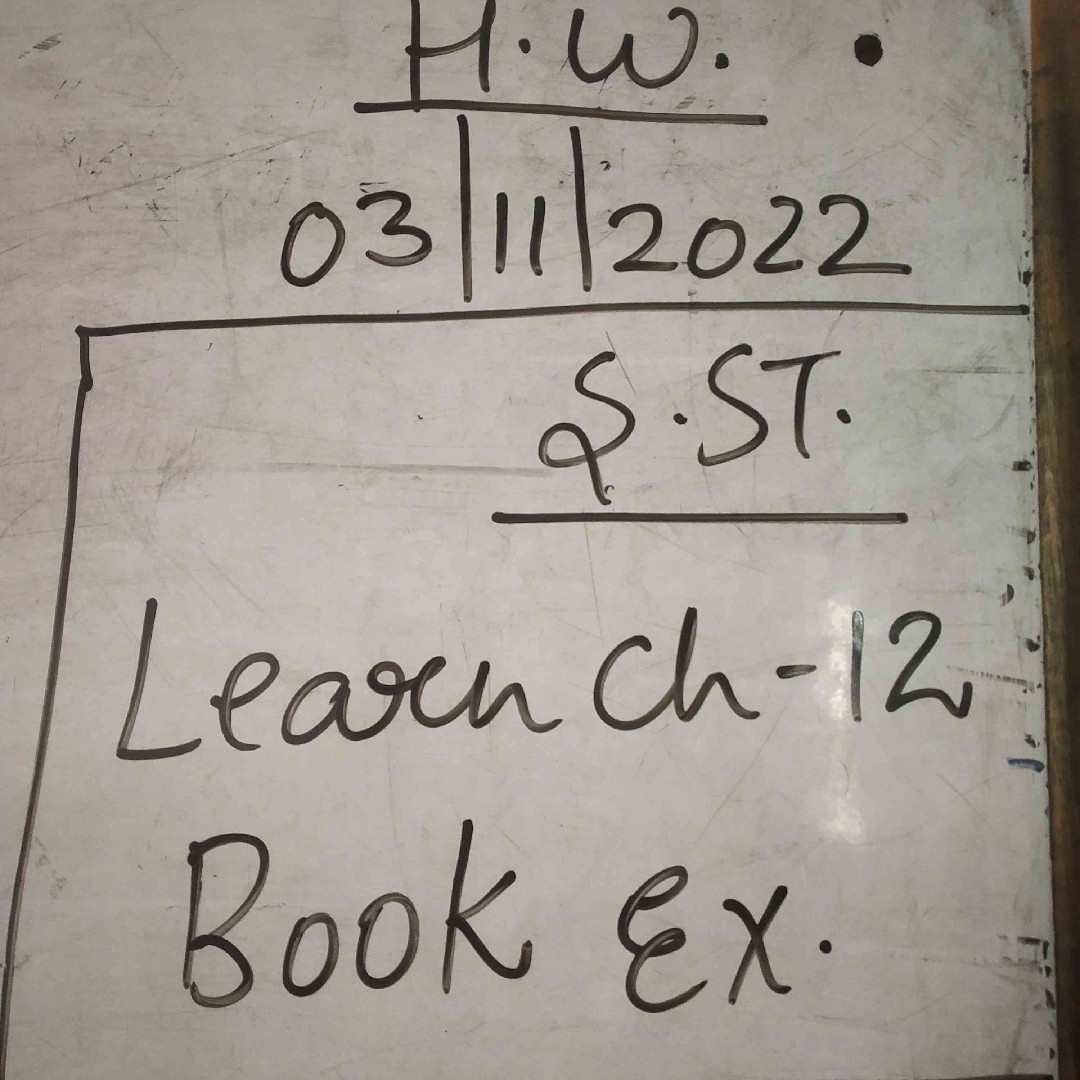 H.W.
03|11|2022
S.ST.
Learn Ch-12
Book Ex.